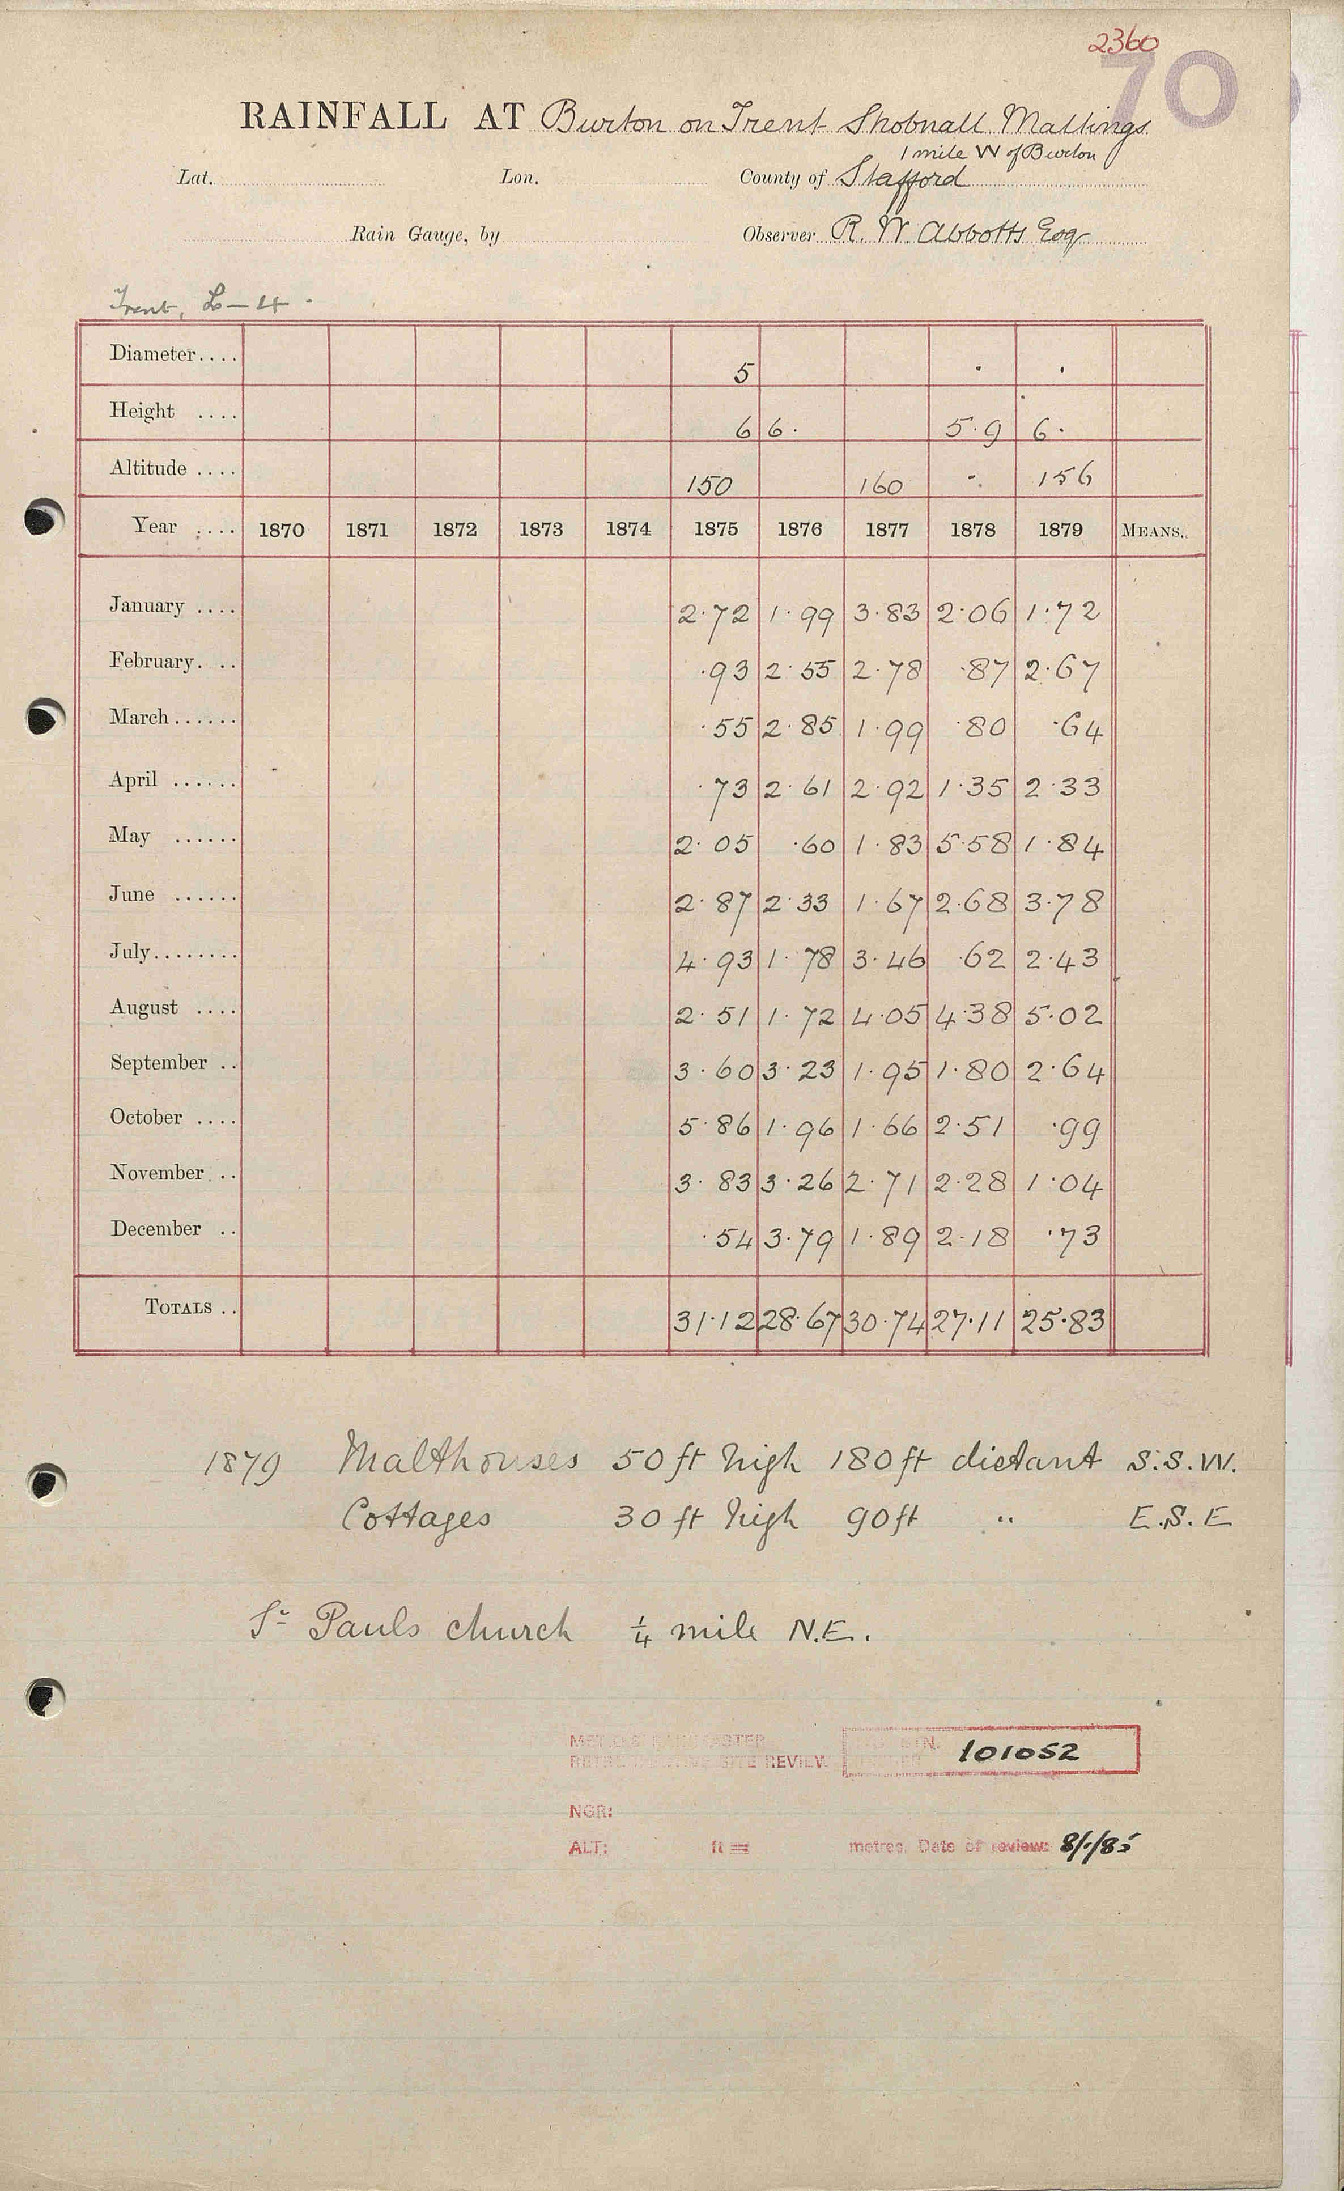 2360
70
RAINFALL AT Burton on Trent Shobnall Maltings
1 mile W of Burton
Lat. Lon. County of Stafford
Rain Gauge, by Observer R. W. Abbotts Esq
Trent, L-4.
Diameter.... 5 . .
Height .... 6 6. 5.9 6.
Altitude .... 150 160 .. 156
Year .... 1870 1871 1872 1873 1874 1875 1876 1877 1878 1879 MEANS.
January .... 2.72 1.99 3.83 2.06 1.72
February. .. .93 2.55 2.78 .87 2.67
March...... .55 2.85 1.99 .80 .64
April ...... .73 2.61 2.92 1.35 2.33
May ...... 2.05 .60 1.83 5.58 1.84
June ...... 2.87 2.33 1.67 2.68 3.78
July........ 4.93 1.78 3.46 .62 2.43
August .... 2.51 1.72 4.05 4.38 5.02
September .. 3.60 3.23 1.95 1.80 2.64
October .... 5.86 1.96 1.66 2.51 .99
November .. 3.83 3.26 2.71 2.28 1.04
December .. .54 3.79 1.89 2.18 .73
TOTALS .. 31.12 28.67 30.74 27.11 25.83
1879 Malthouses 50 ft high 180 ft distant S.S.W.
Cottages 30 ft high 90 ft " E.S.E
St Pauls church ¼ mile N.E.
SITE REVIEW 101052
NGR:
ALT: ft = metres. Date of review: 8/1/85